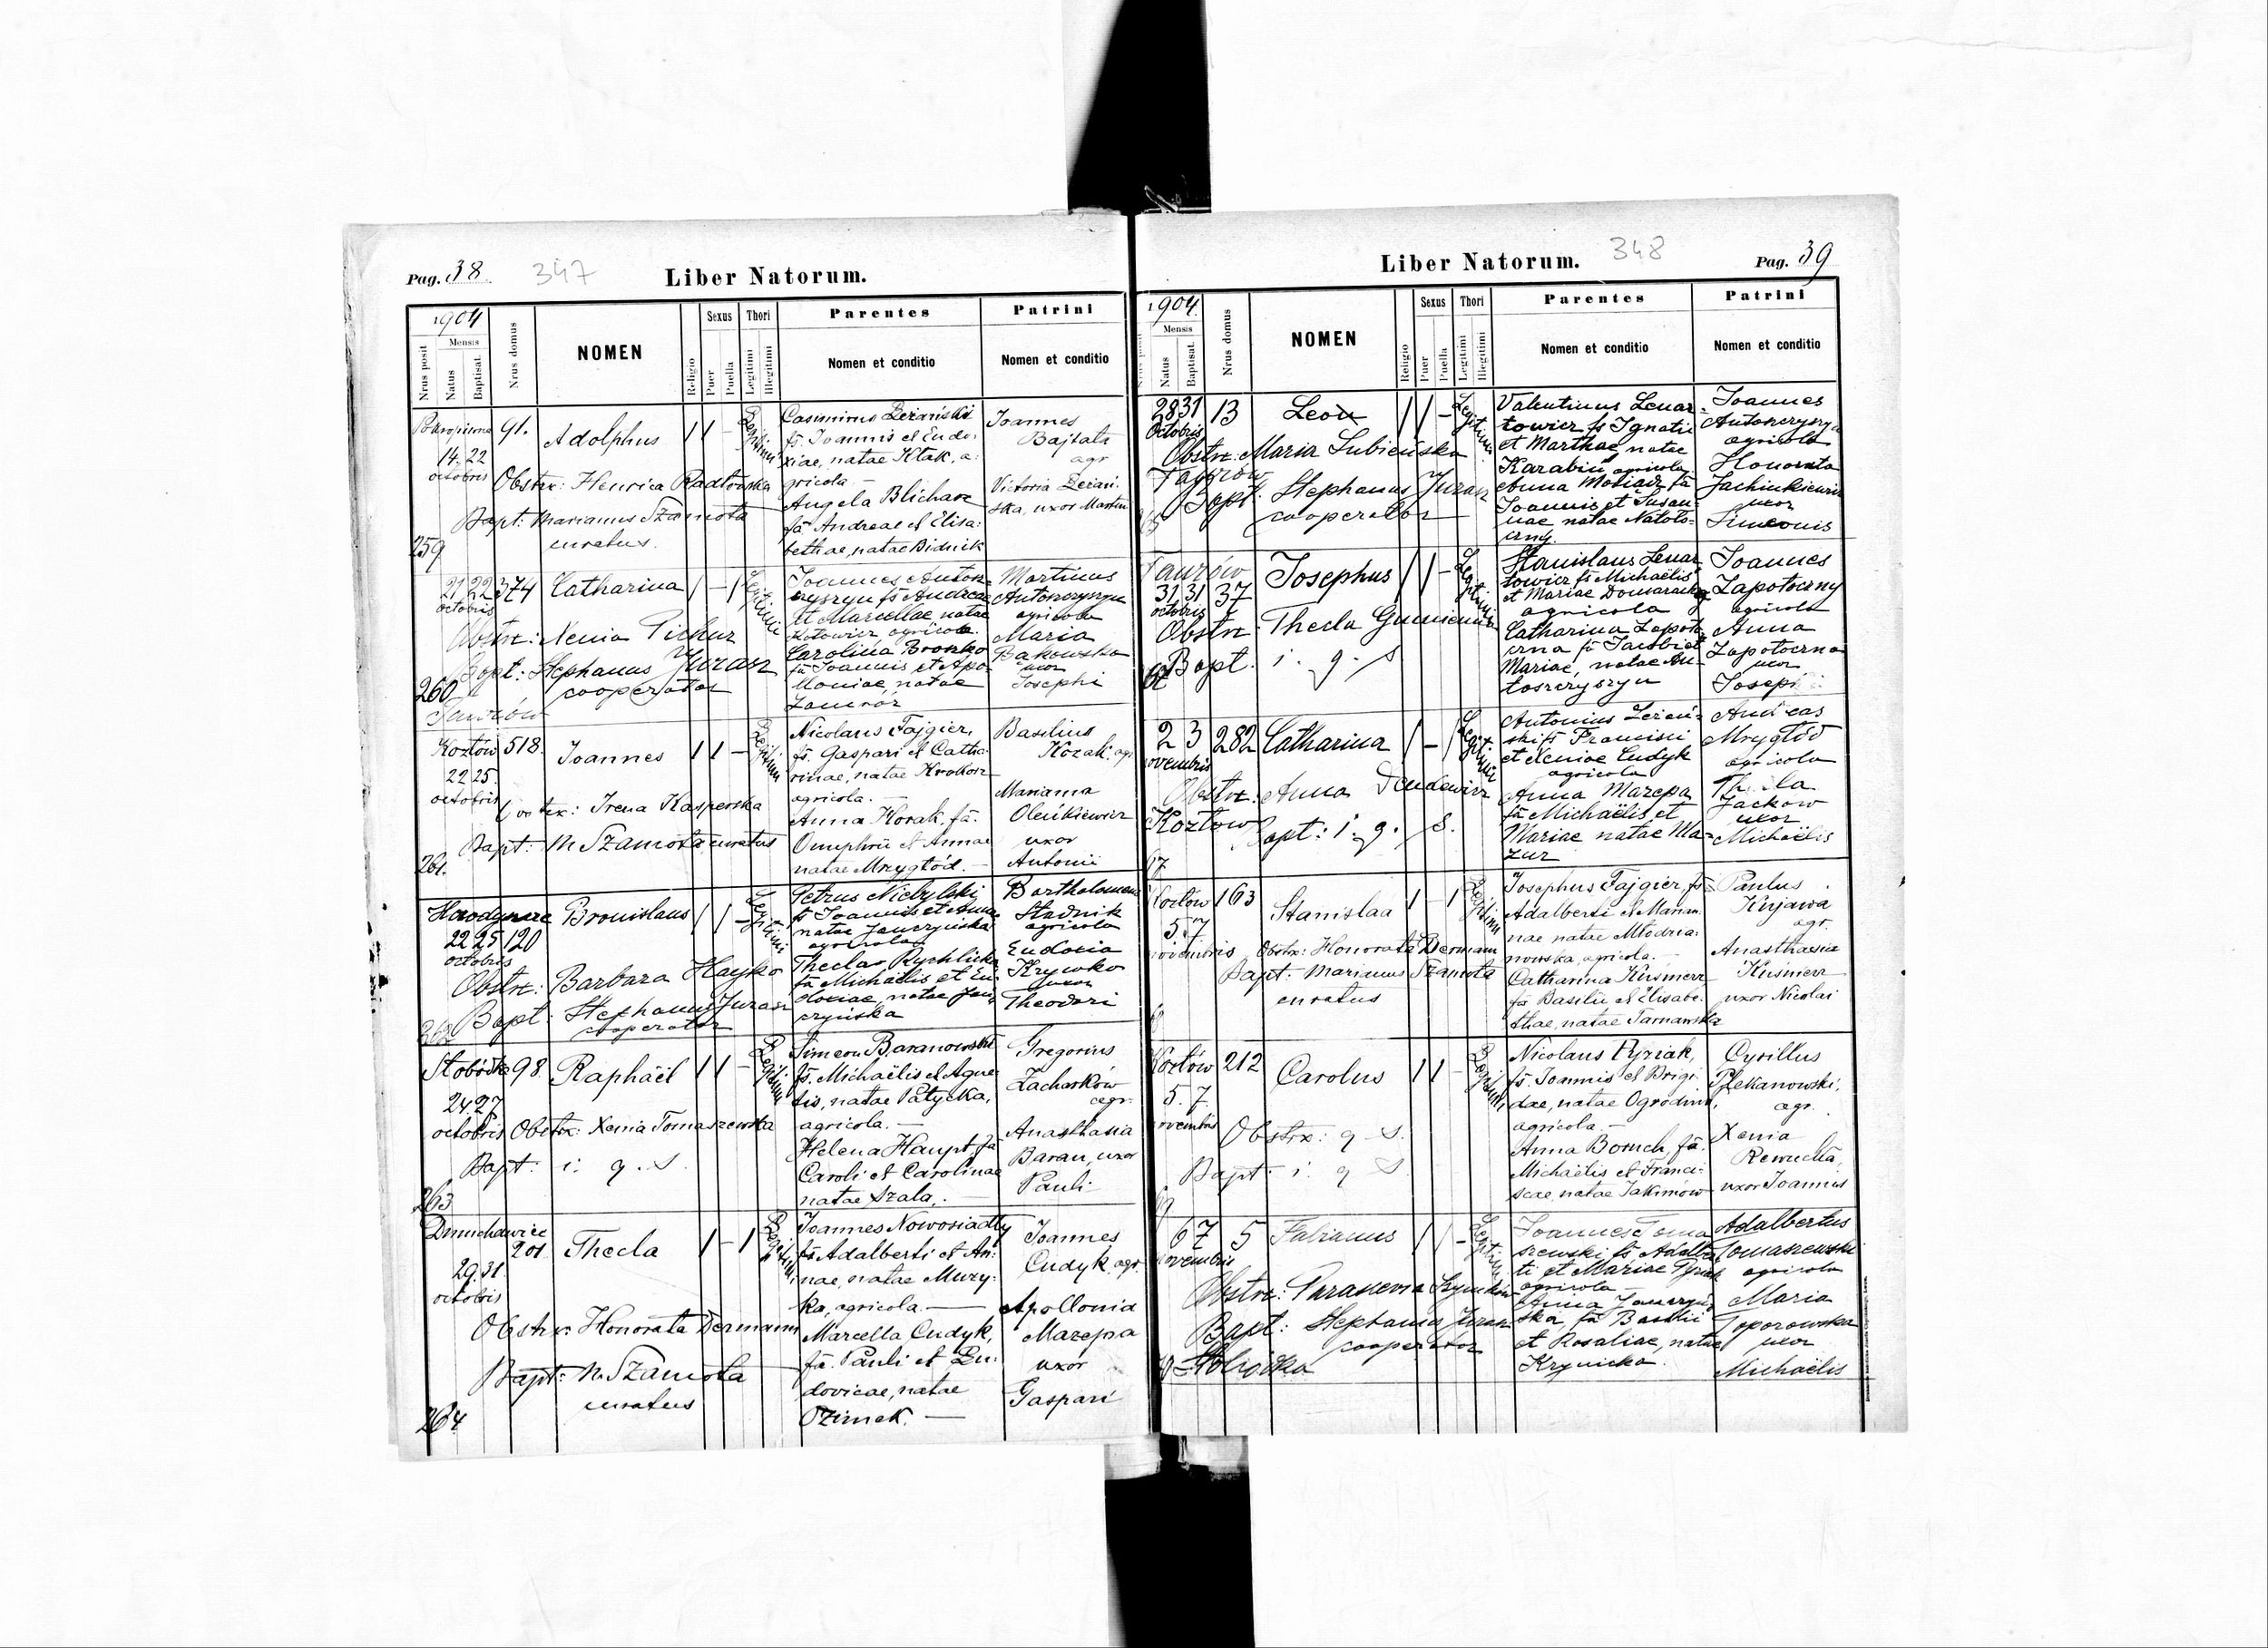 Pag. 38
347
Liber Natorum.
1904
Mensis
Nrus posit
Natus
Baptisat.
Nrus domus
NOMEN
Religio
Sexus
Puer
Puella
Thori
Legitimi
Illegitimi
Parentes
Nomen et conditio
Patrini
Nomen et conditio
91.
14. 22
octobris
Adolphus
Legitimi
Obstrx: Henrica Radłowska
Bapt: Marianus Szamota
curatus.
259
Casimirus Leżański
fs. Joannis et Eudo-
xiae, natae Ktak, a-
gricola —
Angela Blicharz
fa Andreae et Elisa-
bethae, natae Bidnik
Joannes
Bajtala
agr
Victoria Leżań-
ska, uxor Martini
21 22 374
octobris
Catharina
Legitimi
Obstrx: Xenia Pichur
Bapt: Stephanus Jurasz
cooperator
260
Taurów
Joannes Anton-
czyszyn fs Andreae
et Marcellae, natae
agricola
Carolina Bronko
fa Joannis et Apo-
loniae, natae
Martinus
Antonczyszyn
agricola
Maria
Bakowska
uxor
Josephi
Kozłów 518.
22 25.
octobris
Joannes
Legitimi
Obstrx: Irena Kasperska
Bapt: M Szamota curatus
261.
Nicolaus Fajgier,
fs. Gaspari et Catha-
rinae, natae Krokosz
agricola. —
Anna Horak, fa.
Onuphrii et Annae
natae Mrzygłód. —
Basilius
Kozak. agr
Marianna
Oleńkiewicz
uxor
Antonii
22 25 120
octobris
Bronislaus
Legitimi
Obstrx: Barbara Hayko
Bapt: Stephanus Jurasz
cooperator
262
Petrus Niebylski
fs Joannis et Annae
natae Janczyńska
agricola
Thecla Rychlicka
fa Michaëlis et Eu-
doxiae, natae Jan-
czyńska
Bartholomeus
Stadnik
agricola
Eudoxia
Krywko
uxor
Theodori
98.
24. 27
octobris
Raphaël
Legitimi
Obstrx: Xenia Tomaszewska
Bapt: i. q. S.
263
Simeon Baranowski
fs. Michaëlis et Agne-
tis, natae Patycka,
agricola. —
Helena Haupt, fa
Caroli et Carolinae
natae Szala. —
Gregorius
Zacharków
agr.
Anasthasia
Baran, uxor
Pauli
201.
29. 31.
octobris
Thecla
Legitimi
Obstrx: Honorata Dermann
Bapt: M. Szamota
curatus
264
Joannes Nowosiadły
fs Adalberti et An-
nae, natae Muzy-
ka, agricola. —
Marcella Cudyk,
fa. Pauli et Lu-
dovicae, natae
Ozimek. —
Joannes
Cudyk, agr.
Apollonia
Mazepa
uxor
Gaspari
Liber Natorum.
348
Pag. 39
1904
Mensis
Natus
Baptisat.
Nrus domus
NOMEN
Religio
Sexus
Puer
Puella
Thori
Legitimi
Illegitimi
Parentes
Nomen et conditio
Patrini
Nomen et conditio
28 31 13
octobris
Leon
Legitimi
Obstrx: Maria Lubieńska
Taurów
Bapt: Stephanus Jurasz
cooperator
Valentinus Lenar-
towicz fs Ignatii
et Marthae, natae
Karabin agricola
Joannis et Susan-
nae natae
Joannes
Antonczyszyn
agricola
Honorata
Jachinkiewicz
uxor
Simeonis
Taurów
31 31 37
octobris
Josephus
Legitimi
Obstrx: Thecla
Bapt. i. q. S
Stanislaus Lenar-
towicz fs Michaëlis
et Mariae
agricola
Catharina Zapoto-
czna fa Jacobi et
Mariae, natae An-
tonczyszyn
Joannes
Zapotoczny
agricola
Anna
Zapotoczna
uxor
2 3 282
novembris
Catharina
Legitimi
Obstrx: Anna
Kozłow
Bapt: i. q. S.
67
Antonius
ski fs Francisci
et Xeniae Cudyk
agricola
Anna Mazepa
fa Michaëlis et
Mariae natae Ma-
zur
Andreas
Mrygłód
agricola
Jackow
uxor
Michaëlis
Kozłów 163
5. 7
novembris
Stanislaa
Legitimi
Obstrx: Honorata Dermann
Bapt: Marianus Szamota
curatus
Josephus Fajgier, fs
Adalberti et Marian-
nae natae Młodzia-
nowska, agricola. —
Catharina Kuśnierz
fa Basilii et Elisabe-
thae, natae Tarnawska
Paulus
Kujawa
agr.
Anasthasia
Kuśnierz
uxor Nicolai
Kozłów 212
5. 7.
novembris
Carolus
Legitimi
Obstrx: q S.
Bapt: i. q S
Nicolaus Pyziak,
fs. Joannis et Brigi-
dae, natae
agricola —
Anna Boruch, fa.
Michaëlis et Franci-
scae, natae Jakimów
Cyrillus
Plekanowski,
agr.
Xenia
uxor Joannis
6 7 5
novembris
Fabianus
Legitimi
Obstrx:
Bapt: Stephanus Jurasz
cooperator
Joannes Toma-
szewski fs Adalber-
ti et Mariae
agricola
ska, fa Basilii
et Rosaliae, natae
Krynicka.
Adalbertus
Tomaszewski
agricola
Maria
Toporowska
uxor
Michaëlis